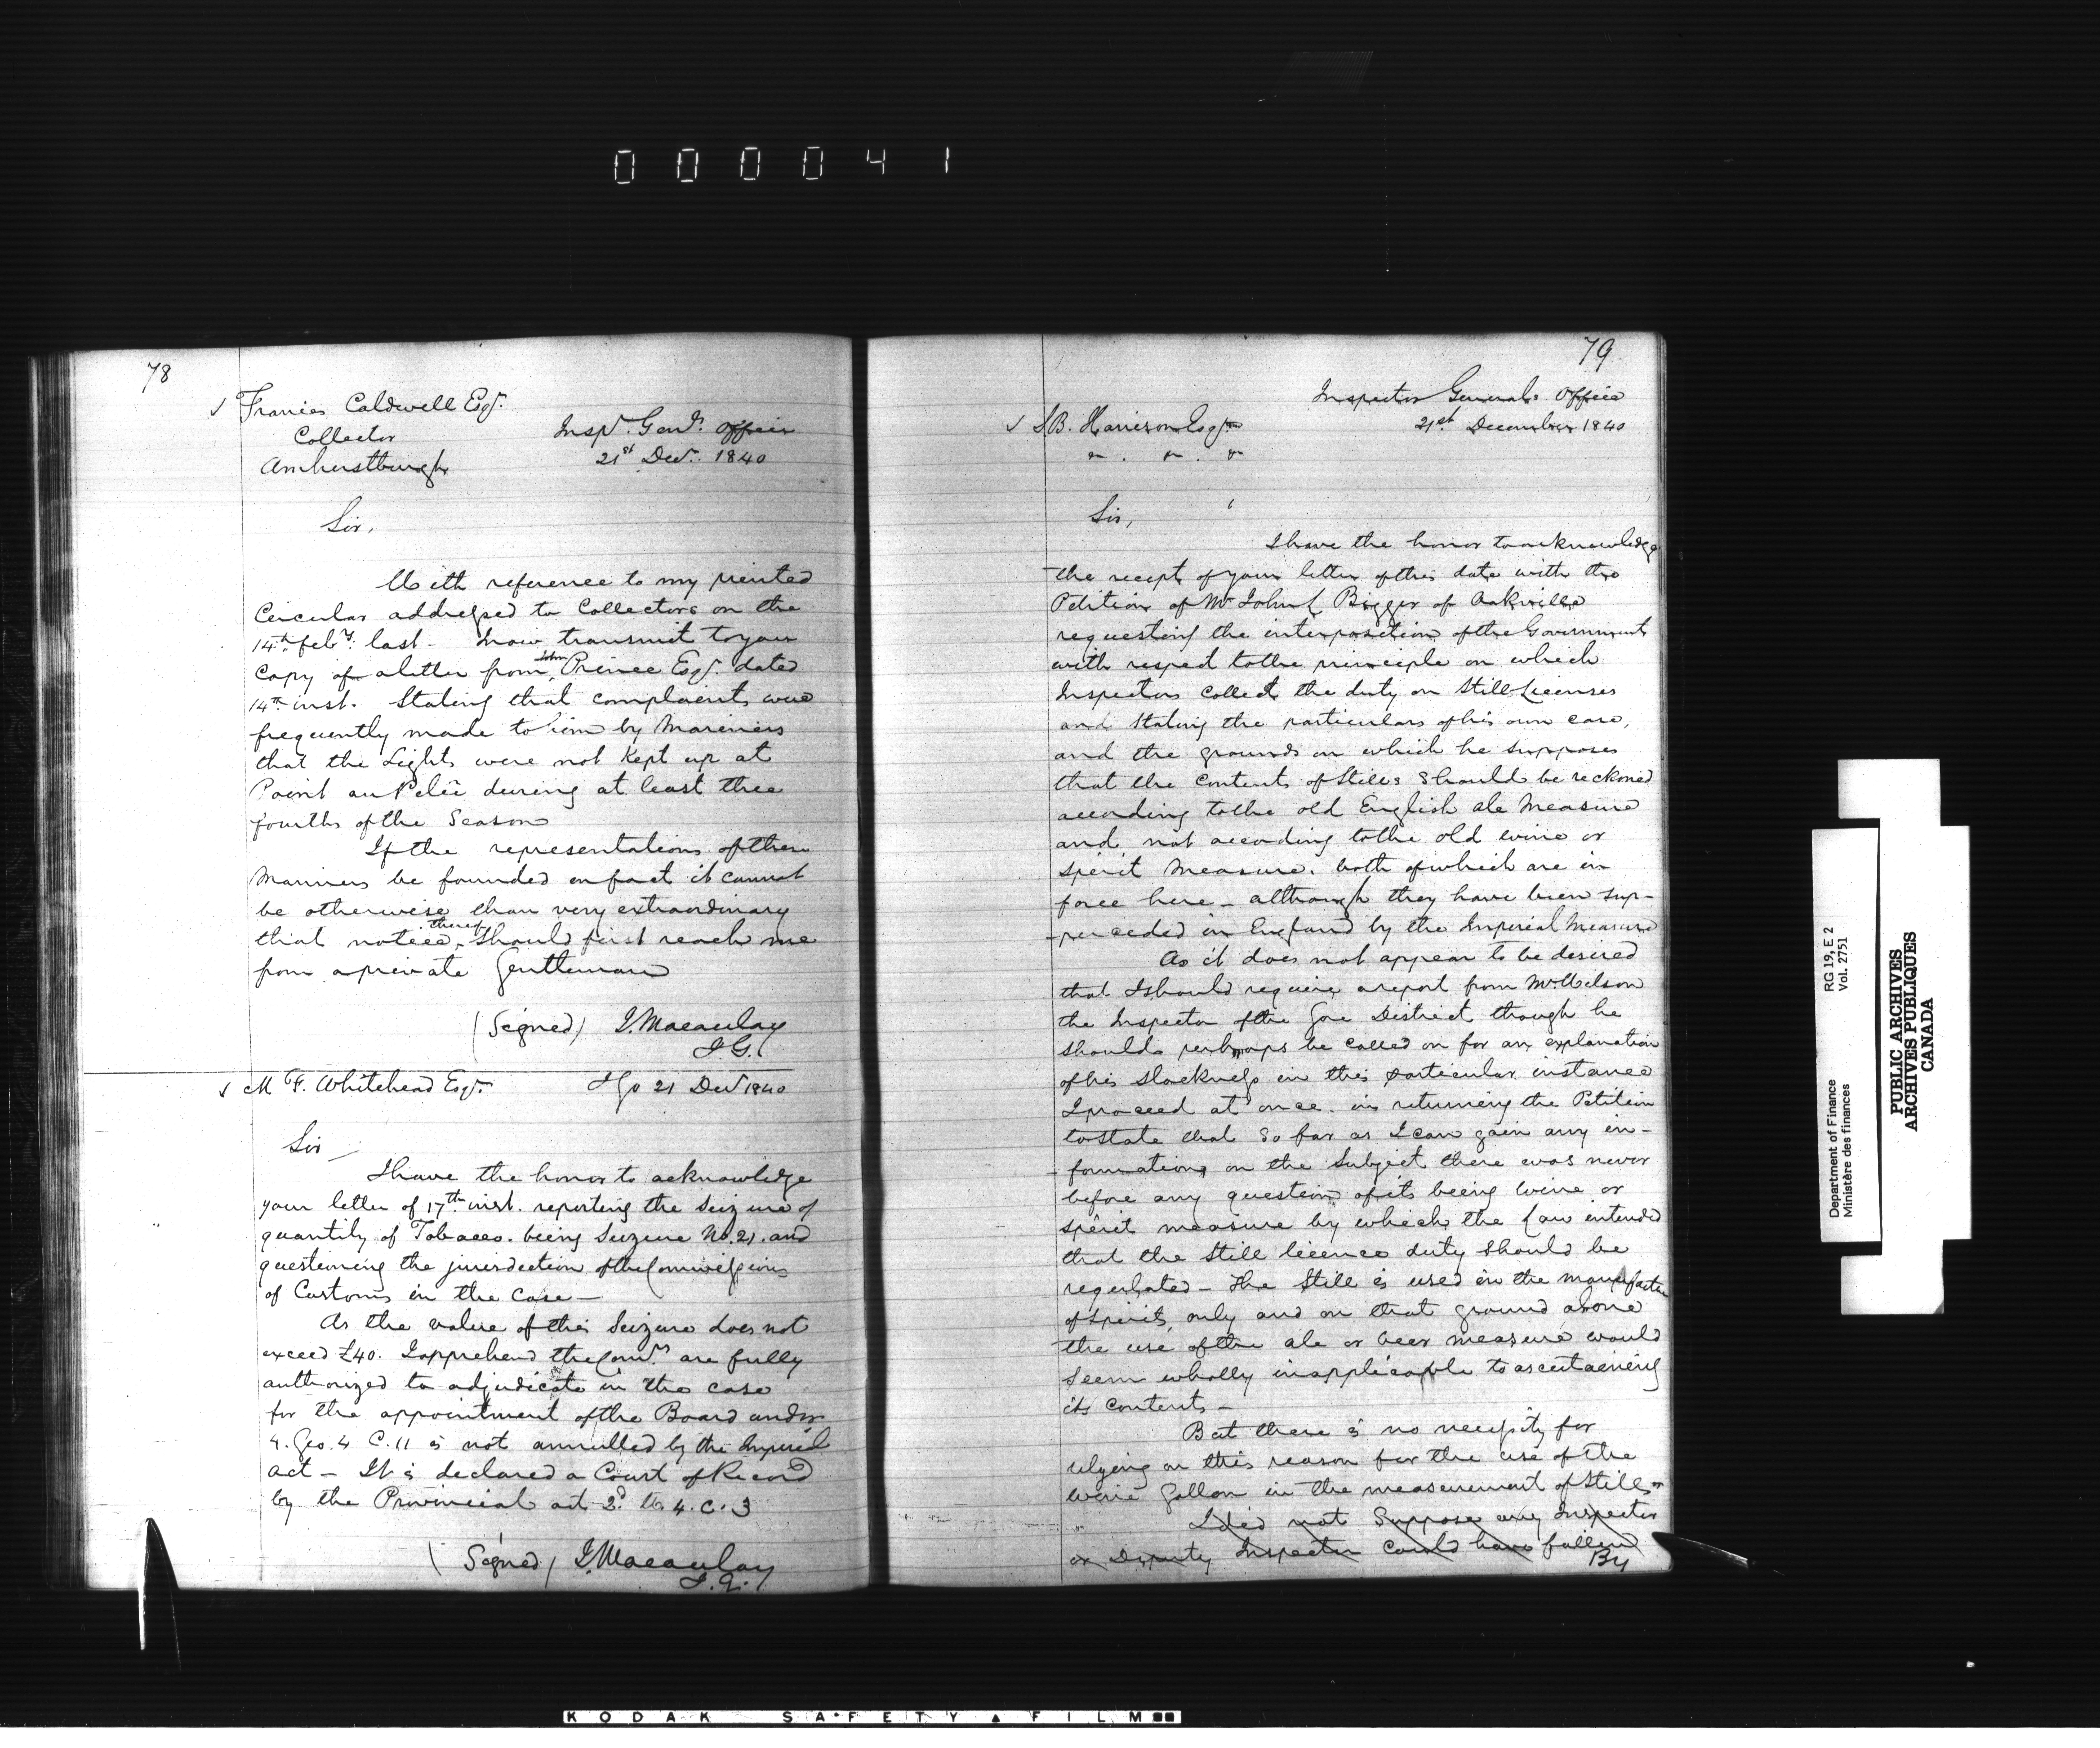 000041
78
✓ Francis Caldwell Esqr.
Collector
Amherstburgh
Inspr. Genl's Office
21st Decr. 1840
Sir,
With reference to my printed
Circular addressed to Collectors on the
14th feby. last - I now transmit to you
Copy of a letter from John Prince Esqr. dated
14th inst. Stating that complaints were
frequently made to him by Mariners
that the Lights were not Kept up at
Point au Pelée during at least three
fourths of the Season
If the representations of these
Mariners be founded on fact it cannot
be otherwise than very extraordinary
that notice thereof should first reach me
from a private Gentleman
(Signed) J. Macaulay
I. G.
✓ M F. Whitehead Esqr.
I G O 21 Decr 1840
Sir
I have the honor to acknowledge
your letter of 17th inst. reporting the Seizure of
quantity of Tobacco. being Seizure No. 21. and
questioning the jurisdiction of the Commissioners
of Customs in the Case —
As the value of this Seizure does not
exceed £40. I apprehend the Comrs. are fully
authorized to adjudicate in the case
for the appointment of the Board under
4. Geo. 4 C. 11 is not annulled by the Imperial
act — It is declared a Court of Record
by the Provincial act 2d. W 4. C. 3
(Signed) J. Macaulay
I. G.
79
Inspector Generals Office
21st December 1840
✓ S.B. Harrison Esqr
Sir,
I have the honor to acknowledge
the receipt of your letter of this date with the
Petition of Mr. John Bigger of Oakville
requesting the interposition of the Government
with respect to the principle on which
Inspectors Collect the duty on Still Licenses
and stating the particulars of his own case,
and the grounds on which he supposes
that the Contents of Stills should be reckoned
according to the old English ale Measure
and not according to the old wine or
Spirit Measure. both of which are in
force here — although they have been sup-
perceded in England by the Imperial Measure
As it does not appear to be desired
that I should require a report from Mr. Wilson
the Inspector of the Gore District though he
should perhaps be called on for an explanation
of his slackness in this particular instance
I proceed at once. in returning the Petition
to state that so far as I can gain any in-
formation, on the Subject there was never
before any question of its being wine or
spirit measure by which the law intended
that the still licence duty should be
regulated — The still is used in the manufacture
of spirits, only and on that ground alone
the use of the ale or beer measure would
seem wholly inapplicable to ascertaining
its contents —
But there is no necessity for
relying on this reason for the use of the
wine Gallon in the measurement of Stills
I did not Suppose any Inspector
or Deputy Inspector could have fallen
By
Department of Finance
Ministère des finances
RG 19, E 2
Vol. 2751
PUBLIC ARCHIVES
ARCHIVES PUBLIQUES
CANADA
KODAK SAFETY FILM